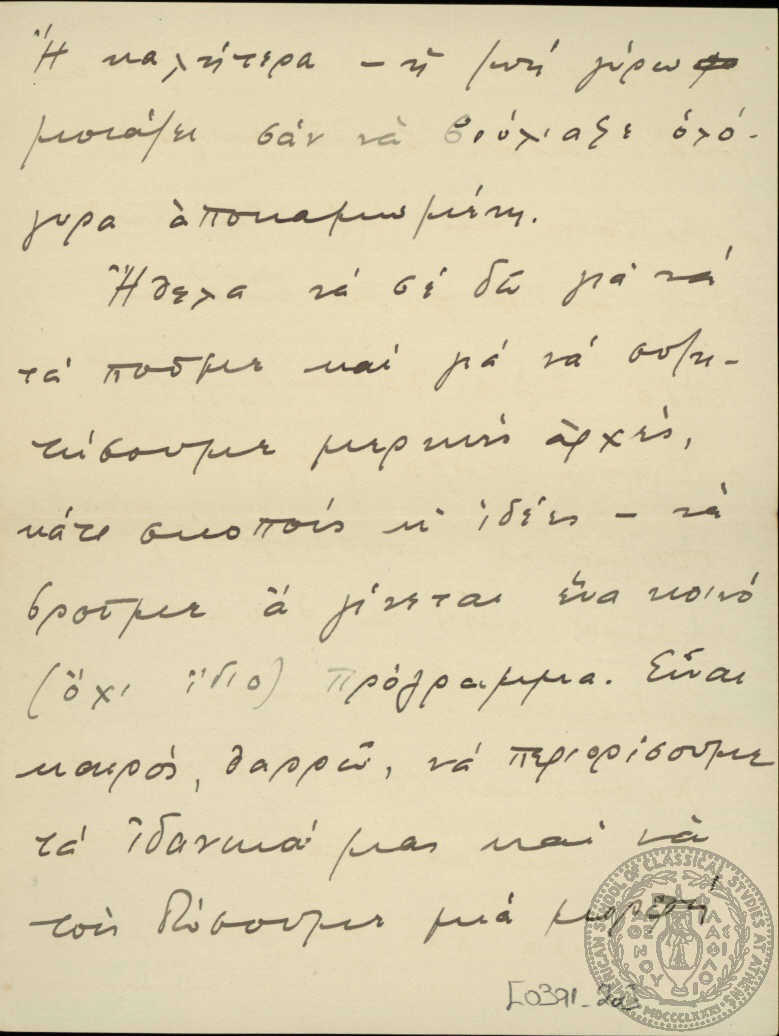 Ἢ καλήτερα – ἡ ζωὴ γύρω
μοιάζει σὰν νὰ βούλιαξε ὁλό-
γυρα ἀποκαμωμένη.
Ἤθελα νὰ σὲ δῶ γιὰ νὰ
τὰ ποῦμε καὶ γιὰ νὰ συζη-
τήσουμε μερικὲς ἀρχές,
κάτι σκοποὺς κ' ἰδέες – νὰ
βροῦμε ἂ γίνεται ἕνα κοινὸ
(ὄχι ἴδιο) πρόγραμμα. Εἶναι
καιρός, θαρρῶ, νὰ περιορίσουμε
τὰ ἰδανικά μας καὶ νὰ
τοὺς δώσουμε μιὰ μορφὴ
[0391-202
AMERICAN SCHOOL OF CLASSICAL STUDIES AT ATHENS
MDCCCLXXXI